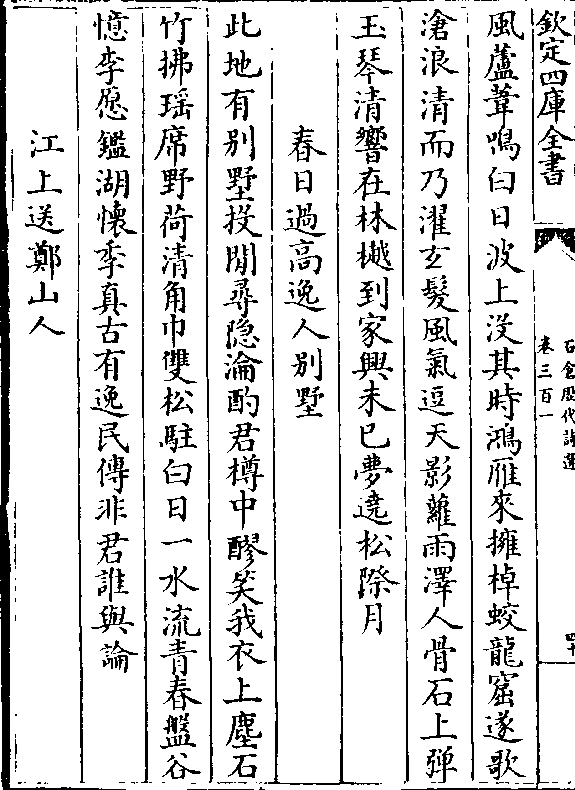 欽定四庫全書
石倉歷代詩選
卷三百一
四十
風蘆葦鳴白日波上沒其時鴻雁來擁棹蛟龍窟遂歌
滄浪清而乃濯玄髮風氣逗天影蘿雨澤人骨石上弹
玉琴清響在林樾到家興未已夢遶松際月
春日過高逸人别墅
此地有别墅投閒尋隐淪酌君樽中醪笑我衣上塵石
竹拂瑶席野荷清角巾雙松駐白日一水流青春盤谷
憶李愿鑑湖懷季真古有逸民傳非君誰與論
江上送鄭山人